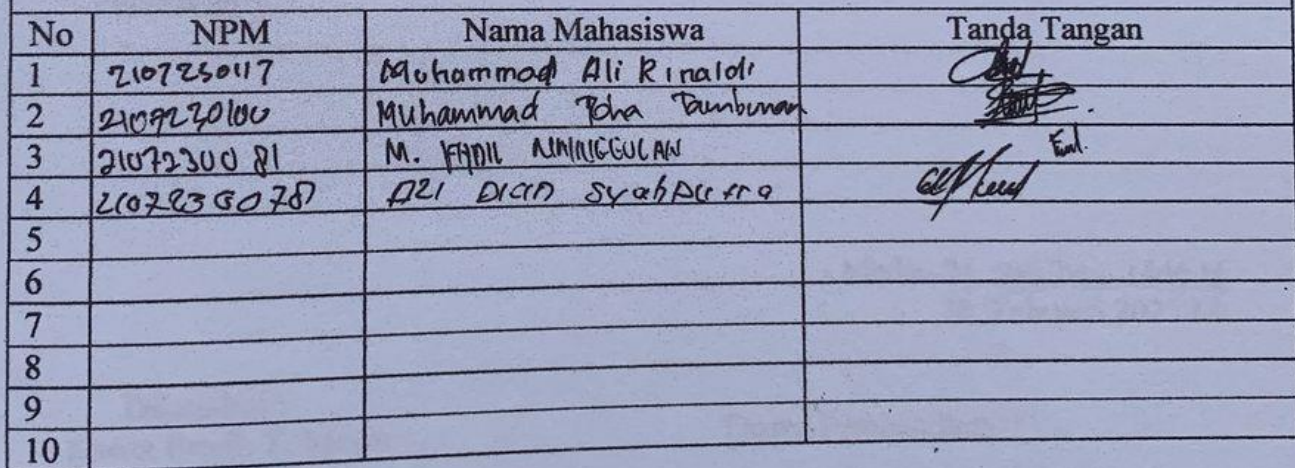 No NPM Nama Mahasiswa Tanda Tangan
1 2107230117 Muhammad Ali Rinaldi
2 2107230100 Muhammad Toha Tambunan
3 2107230081 M. FADIL
4 2107230078
5
6
7
8
9
10